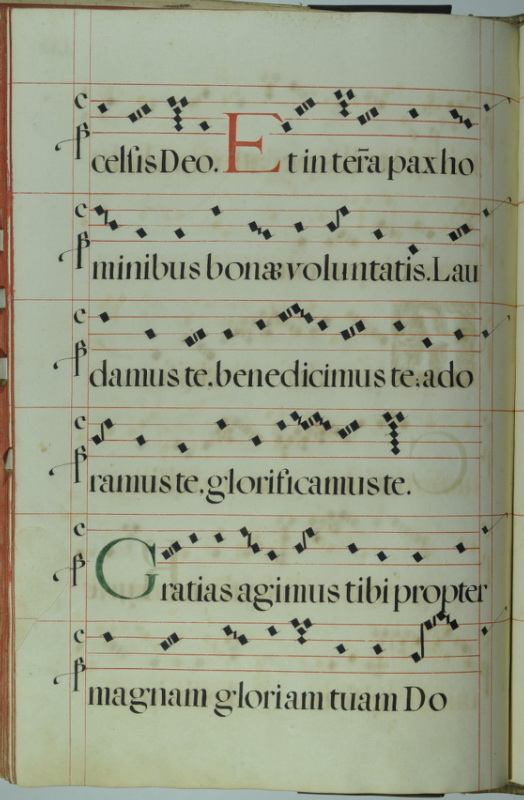 celsis Deo. Et in ter̃a pax ho
minibus bonæ voluntatis. Lau
damus te. benedicimus te: ado
ramus te. glorificamus te.
Gratias agimus tibi propter
magnam gloriam tuam Do